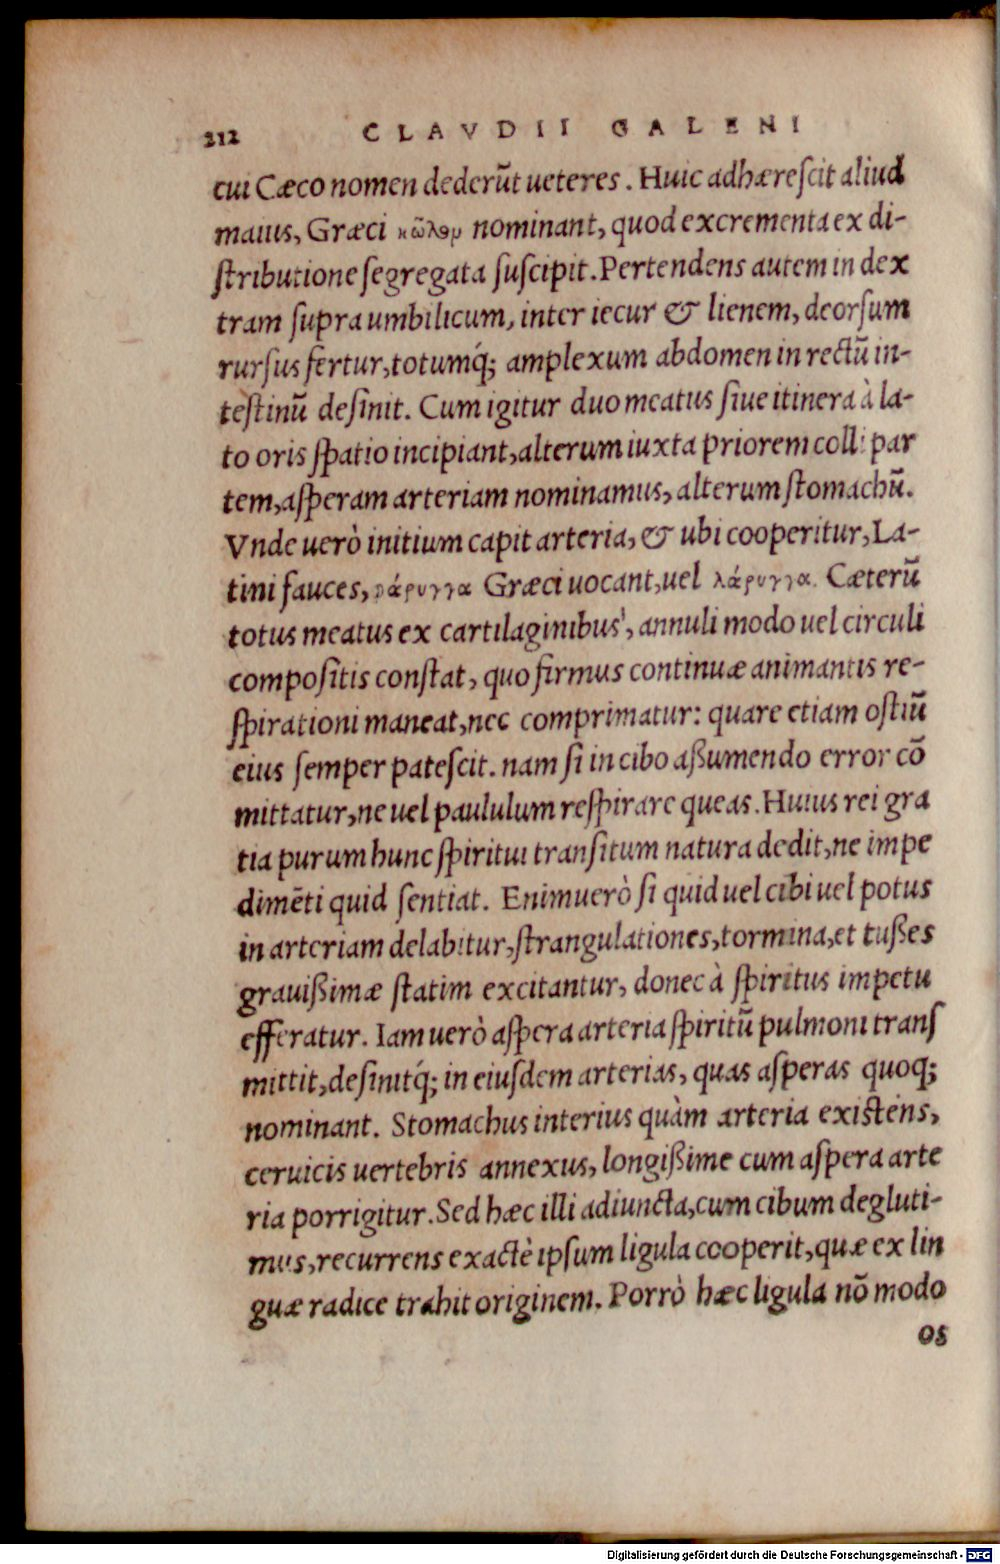 212 CLAVDII GALENI
cui Cæco nomen dederũt ueteres. Huic adhærescit aliud
maius, Græci κῶλον nominant, quod excrementa ex di-
stributione segregata suscipit. Pertendens autem in dex
tram supra umbilicum, inter iecur & lienem, deorsum
rursus fertur, totumq́; amplexum abdomen in rectũ in-
testinũ desinit. Cum igitur duo meatus siue itinera à la-
to oris spatio incipiant, alterum iuxta priorem colli par
tem, asperam arteriam nominamus, alterum stomachũ.
Vnde uerò initium capit arteria, & ubi cooperitur, La-
tini fauces, φάρυγγα Græci uocant, uel λάρυγγα. Cæterũ
totus meatus ex cartilaginibus, annuli modo uel circuli
compositis constat, quo firmus continuæ animantis re-
spirationi maneat, nec comprimatur: quare etiam ostiũ
eius semper patescit. nam si in cibo aßumendo error cõ
mittatur, ne uel paululum respirare queas. Huius rei gra
tia purum hunc spiritui transitum natura dedit, ne impe
dimẽti quid sentiat. Enimuerò si quid uel cibi uel potus
in arteriam delabitur, strangulationes, tormina, et tußes
grauißimæ statim excitantur, donec à spiritus impetu
efferatur. Iam uerò aspera arteria spiritũ pulmoni trans
mittit, desinitq́; in eiusdem arterias, quas asperas quoq;
nominant. Stomachus interius quàm arteria existens,
ceruicis uertebris annexus, longißime cum aspera arte
ria porrigitur. Sed hæc illi adiuncta, cum cibum degluti-
mus, recurrens exactè ipsum ligula cooperit, quæ ex lin
guæ radice trahit originem. Porrò hæc ligula nõ modo
os
Digitalisierung gefördert durch die Deutsche Forschungsgemeinschaft - DFG